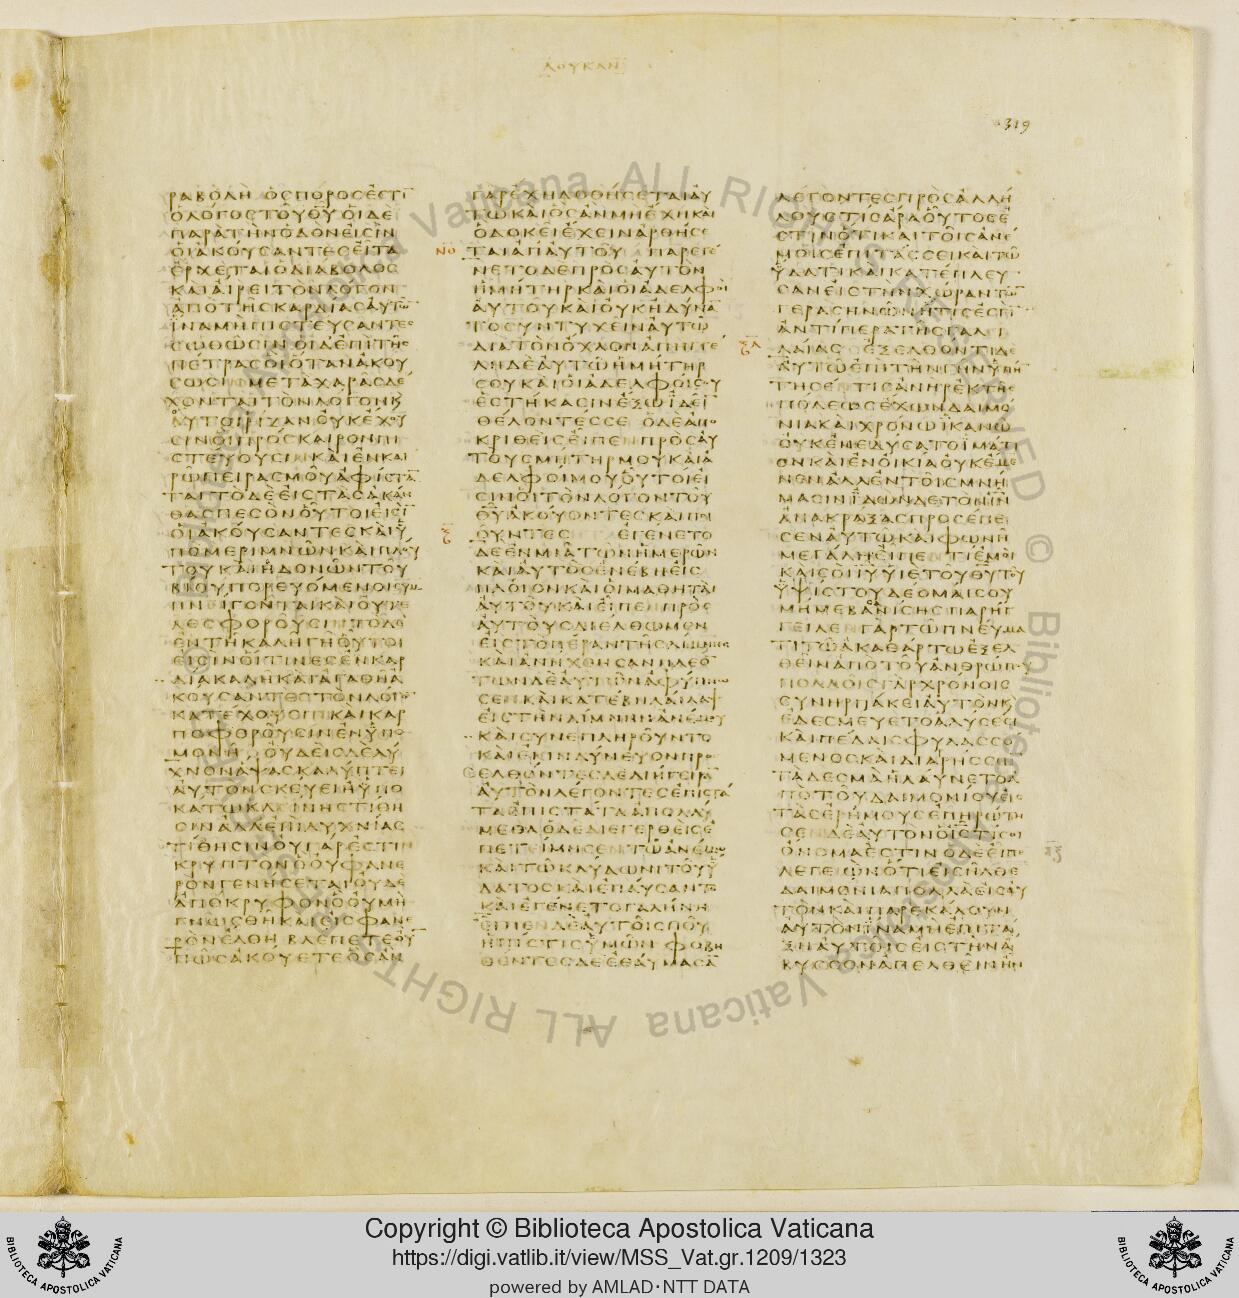 ΛΟΥΚΑΝ
319
ΡΑΒΟΛΗ Ο ΣΠΟΡΟΣ ΕΣΤΙ
Ο ΛΟΓΟΣ ΤΟΥ ΘΥ ΟΙ ΔΕ
ΠΑΡΑ ΤΗΝ ΟΔΟΝ ΕΙΣΙΝ
ΟΙ ΑΚΟΥΣΑΝΤΕΣ ΕΙΤΑ
ΕΡΧΕΤΑΙ Ο ΔΙΑΒΟΛΟΣ
ΚΑΙ ΑΙΡΕΙ ΤΟΝ ΛΟΓΟΝ
ΑΠΟ ΤΗΣ ΚΑΡΔΙΑΣ ΑΥΤΩ
ΙΝΑ ΜΗ ΠΙΣΤΕΥΣΑΝΤΕΣ
ΣΩΘΩΣΙΝ ΟΙ ΔΕ ΕΠΙ ΤΗΣ
ΠΕΤΡΑΣ ΟΙ ΟΤΑΝ ΑΚΟΥ
ΣΩΣΙΝ ΜΕΤΑ ΧΑΡΑΣ ΔΕ
ΧΟΝΤΑΙ ΤΟΝ ΛΟΓΟΝ Κ
ΑΥΤΟΙ ΡΙΖΑΝ ΟΥΚ ΕΧΟΥ
ΣΙΝ ΟΙ ΠΡΟΣ ΚΑΙΡΟΝ ΠΙ
ΣΤΕΥΟΥΣΙΝ ΚΑΙ ΕΝ ΚΑΙ
ΡΩ ΠΕΙΡΑΣΜΟΥ ΑΦΙΣΤΑ
ΤΑΙ ΤΟ ΔΕ ΕΙΣ ΤΑΣ ΑΚΑΝ
ΘΑΣ ΠΕΣΟΝ ΟΥΤΟΙ ΕΙΣΙ
ΟΙ ΑΚΟΥΣΑΝΤΕΣ ΚΑΙ Υ
ΠΟ ΜΕΡΙΜΝΩΝ ΚΑΙ ΠΛΟΥ
ΤΟΥ ΚΑΙ ΗΔΟΝΩΝ ΤΟΥ
ΒΙΟΥ ΠΟΡΕΥΟΜΕΝΟΙ ΣΥΝ
ΠΝΙΓΟΝΤΑΙ ΚΑΙ ΟΥ ΤΕ
ΛΕΣΦΟΡΟΥΣΙΝ ΤΟ ΔΕ
ΕΝ ΤΗ ΚΑΛΗ ΓΗ ΟΥΤΟΙ
ΕΙΣΙΝ ΟΙΤΙΝΕΣ ΕΝ ΚΑΡ
ΔΙΑ ΚΑΛΗ ΚΑΙ ΑΓΑΘΗ Α
ΚΟΥΣΑΝΤΕΣ ΤΟΝ ΛΟΓΟΝ
ΚΑΤΕΧΟΥΣΙΝ ΚΑΙ ΚΑΡ
ΠΟΦΟΡΟΥΣΙΝ ΕΝ ΥΠΟ
ΜΟΝΗ ΟΥΔΕΙΣ ΔΕ ΛΥ
ΧΝΟΝ ΑΨΑΣ ΚΑΛΥΠΤΕΙ
ΑΥΤΟΝ ΣΚΕΥΕΙ Η ΥΠΟ
ΚΑΤΩ ΚΛΙΝΗΣ ΤΙΘΗ
ΣΙΝ ΑΛΛ ΕΠΙ ΛΥΧΝΙΑΣ
ΤΙΘΗΣΙΝ ΟΥ ΓΑΡ ΕΣΤΙΝ
ΚΡΥΠΤΟΝ Ο ΟΥ ΦΑΝΕ
ΡΟΝ ΓΕΝΗΣΕΤΑΙ ΟΥΔΕ
ΑΠΟΚΡΥΦΟΝ Ο ΟΥ ΜΗ
ΓΝΩΣΘΗ ΚΑΙ ΕΙΣ ΦΑΝΕ
ΡΟΝ ΕΛΘΗ ΒΛΕΠΕΤΕ ΟΥ
ΠΩΣ ΑΚΟΥΕΤΕ ΟΣ ΑΝ
ΓΑΡ ΕΧΗ ΔΟΘΗΣΕΤΑΙ ΑΥ
ΤΩ ΚΑΙ ΟΣ ΑΝ ΜΗ ΕΧΗ ΚΑΙ
Ο ΔΟΚΕΙ ΕΧΕΙΝ ΑΡΘΗΣΕ
ΝΘ ΤΑΙ ΑΠ ΑΥΤΟΥ ΠΑΡΕΓΕ
ΝΕΤΟ ΔΕ ΠΡΟΣ ΑΥΤΟΝ
Η ΜΗΤΗΡ ΚΑΙ ΟΙ ΑΔΕΛΦΟΙ
ΑΥΤΟΥ ΚΑΙ ΟΥΚ ΗΔΥΝΑ
ΤΟ ΣΥΝΤΥΧΕΙΝ ΑΥΤΩ
ΔΙΑ ΤΟΝ ΟΧΛΟΝ ΑΠΗΓΓΕ
ΛΗ ΔΕ ΑΥΤΩ Η ΜΗΤΗΡ
ΣΟΥ ΚΑΙ ΟΙ ΑΔΕΛΦΟΙ ΣΟΥ
ΕΣΤΗΚΑΣΙΝ ΕΞΩ ΙΔΕΙ
ΘΕΛΟΝΤΕΣ ΣΕ Ο ΔΕ ΑΠΟ
ΚΡΙΘΕΙΣ ΕΙΠΕΝ ΠΡΟΣ ΑΥ
ΤΟΥΣ ΜΗΤΗΡ ΜΟΥ ΚΑΙ Α
ΔΕΛΦΟΙ ΜΟΥ ΟΥΤΟΙ ΕΙ
ΣΙΝ ΟΙ ΤΟΝ ΛΟΓΟΝ ΤΟΥ
ΘΥ ΑΚΟΥΟΝΤΕΣ ΚΑΙ ΠΟΙ
Ξ ΟΥΝΤΕΣ ΕΓΕΝΕΤΟ
ΔΕ ΕΝ ΜΙΑ ΤΩΝ ΗΜΕΡΩΝ
ΚΑΙ ΑΥΤΟΣ ΕΝΕΒΗ ΕΙΣ
ΠΛΟΙΟΝ ΚΑΙ ΟΙ ΜΑΘΗΤΑΙ
ΑΥΤΟΥ ΚΑΙ ΕΙΠΕΝ ΠΡΟΣ
ΑΥΤΟΥΣ ΔΙΕΛΘΩΜΕΝ
ΕΙΣ ΤΟ ΠΕΡΑΝ ΤΗΣ ΛΙΜΝΗΣ
ΚΑΙ ΑΝΗΧΘΗΣΑΝ ΠΛΕΟ
ΤΩΝ ΔΕ ΑΥΤΩΝ ΑΦΥΠΝΩ
ΣΕΝ ΚΑΙ ΚΑΤΕΒΗ ΛΑΙΛΑΨ
ΕΙΣ ΤΗΝ ΛΙΜΝΗΝ ΑΝΕΜΟΥ
ΚΑΙ ΣΥΝΕΠΛΗΡΟΥΝΤΟ
ΚΑΙ ΕΚΙΝΔΥΝΕΥΟΝ ΠΡΟ
ΣΕΛΘΟΝΤΕΣ ΔΕ ΔΙΗΓΕΙΡΑ
ΑΥΤΟΝ ΛΕΓΟΝΤΕΣ ΕΠΙΣΤΑ
ΤΑ ΕΠΙΣΤΑΤΑ ΑΠΟΛΛΥ
ΜΕΘΑ Ο ΔΕ ΔΙΕΓΕΡΘΕΙΣ Ε
ΠΕΤΕΙΜΗΣΕΝ ΤΩ ΑΝΕΜΩ
ΚΑΙ ΤΩ ΚΛΥΔΩΝΙ ΤΟΥ Υ
ΔΑΤΟΣ ΚΑΙ ΕΠΑΥΣΑΝΤΟ
ΚΑΙ ΕΓΕΝΕΤΟ ΓΑΛΗΝΗ
ΕΙΠΕΝ ΔΕ ΑΥΤΟΙΣ ΠΟΥ
Η ΠΙΣΤΙΣ ΥΜΩΝ ΦΟΒΗ
ΘΕΝΤΕΣ ΔΕ ΕΘΑΥΜΑΣΑ
ΛΕΓΟΝΤΕΣ ΠΡΟΣ ΑΛΛΗ
ΛΟΥΣ ΤΙΣ ΑΡΑ ΟΥΤΟΣ Ε
ΣΤΙΝ ΟΤΙ ΚΑΙ ΤΟΙΣ ΑΝΕ
ΜΟΙΣ ΕΠΙΤΑΣΣΕΙ ΚΑΙ ΤΩ
ΥΔΑΤΙ ΚΑΙ ΚΑΤΕΠΛΕΥ
ΣΑΝ ΕΙΣ ΤΗΝ ΧΩΡΑΝ ΤΩ
ΓΕΡΑΣΗΝΩΝ ΗΤΙΣ ΕΣΤΙ
ΑΝΤΙΠΕΡΑ ΤΗΣ ΓΑΛΙ
ΞΑ ΛΑΙΑΣ ΕΞΕΛΘΟΝΤΙ ΔΕ
ΑΥΤΩ ΕΠΙ ΤΗΝ ΓΗΝ ΥΠΗΝ
ΤΗΣΕΝ ΤΙΣ ΑΝΗΡ ΕΚ ΤΗΣ
ΠΟΛΕΩΣ ΕΧΩΝ ΔΑΙΜΟ
ΝΙΑ ΚΑΙ ΧΡΟΝΩ ΙΚΑΝΩ
ΟΥΚ ΕΝΕΔΥΣΑΤΟ ΙΜΑΤΙ
ΟΝ ΚΑΙ ΕΝ ΟΙΚΙΑ ΟΥΚ ΕΜΕ
ΝΕΝ ΑΛΛ ΕΝ ΤΟΙΣ ΜΝΗ
ΜΑΣΙΝ ΙΔΩΝ ΔΕ ΤΟΝ ΙΝ
ΑΝΑΚΡΑΞΑΣ ΠΡΟΣΕΠΕ
ΣΕΝ ΑΥΤΩ ΚΑΙ ΦΩΝΗ
ΜΕΓΑΛΗ ΕΙΠΕΝ ΤΙ ΕΜΟΙ
ΚΑΙ ΣΟΙ ΙΥ ΥΙΕ ΤΟΥ ΘΥ ΤΟΥ
ΥΨΙΣΤΟΥ ΔΕΟΜΑΙ ΣΟΥ
ΜΗ ΜΕ ΒΑΣΑΝΙΣΗΣ ΠΑΡΗΓ
ΓΕΙΛΕΝ ΓΑΡ ΤΩ ΠΝΕΥΜΑ
ΤΙ ΤΩ ΑΚΑΘΑΡΤΩ ΕΞΕΛ
ΘΕΙΝ ΑΠΟ ΤΟΥ ΑΝΘΡΩΠΟΥ
ΠΟΛΛΟΙΣ ΓΑΡ ΧΡΟΝΟΙΣ
ΣΥΝΗΡΠΑΚΕΙ ΑΥΤΟΝ Κ
ΕΔΕΣΜΕΥΕΤΟ ΑΛΥΣΕΣΙ
ΚΑΙ ΠΕΔΑΙΣ ΦΥΛΑΣΣΟ
ΜΕΝΟΣ ΚΑΙ ΔΙΑΡΗΣΣΩ
ΤΑ ΔΕΣΜΑ ΗΛΑΥΝΕΤΟ Α
ΠΟ ΤΟΥ ΔΑΙΜΟΝΙΟΥ ΕΙΣ
ΤΑΣ ΕΡΗΜΟΥΣ ΕΠΗΡΩΤΗ
ΣΕΝ ΔΕ ΑΥΤΟΝ Ο ΙΣ ΤΙ ΣΟΙ
ΟΝΟΜΑ ΕΣΤΙΝ Ο ΔΕ ΕΙΠΕ
ΛΕΓΕΙΩΝ ΟΤΙ ΕΙΣΗΛΘΕ
ΔΑΙΜΟΝΙΑ ΠΟΛΛΑ ΕΙΣ ΑΥ
ΤΟΝ ΚΑΙ ΠΑΡΕΚΑΛΟΥΝ
ΑΥΤΟΝ ΙΝΑ ΜΗ ΕΠΙΤΑ
ΞΗ ΑΥΤΟΙΣ ΕΙΣ ΤΗΝ Α
ΒΥΣΣΟΝ ΑΠΕΛΘΕΙΝ ΗΝ
Biblioteca Apostolica Vaticana ALL RIGHTS RESERVED ©
BIBLIOTECA APOSTOLICA VATICANA
Copyright © Biblioteca Apostolica Vaticana
https://digi.vatlib.it/view/MSS_Vat.gr.1209/1323
powered by AMLAD·NTT DATA
BIBLIOTECA APOSTOLICA VATICANA